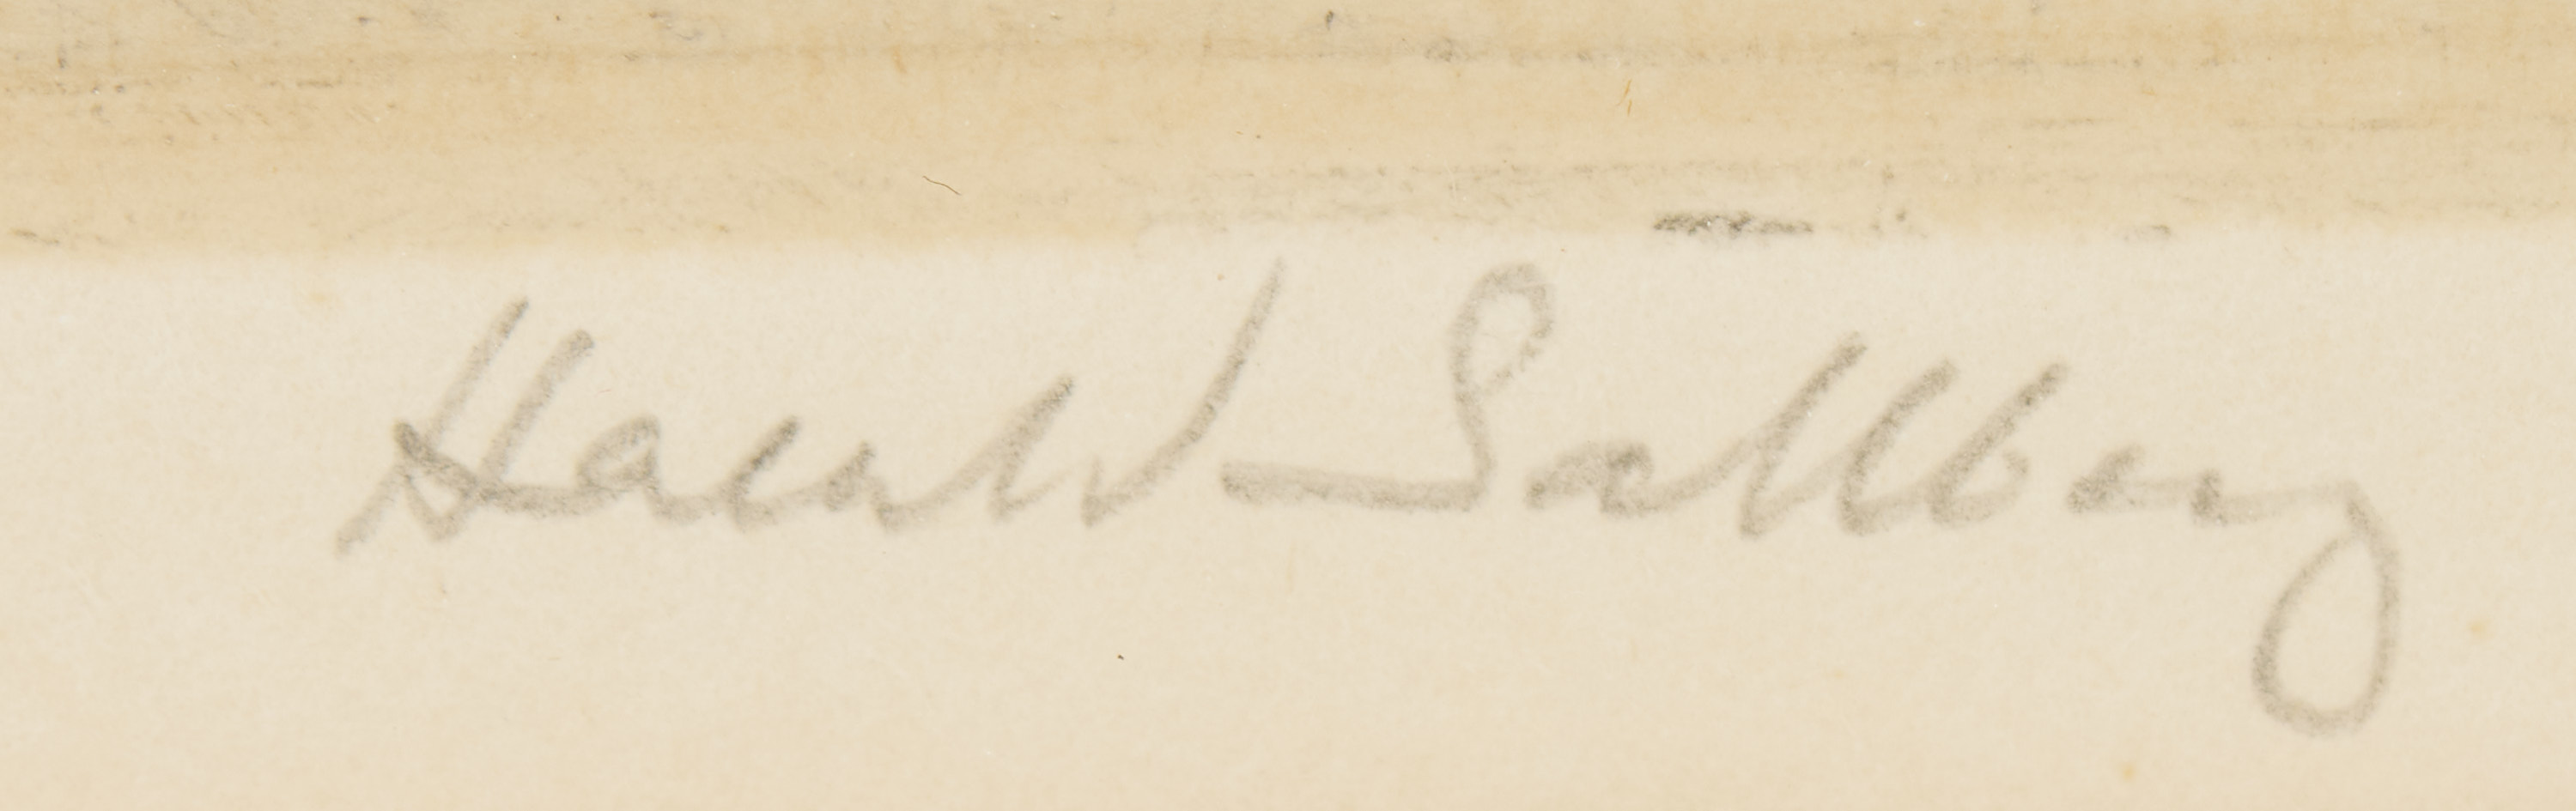 Harald Sallberg